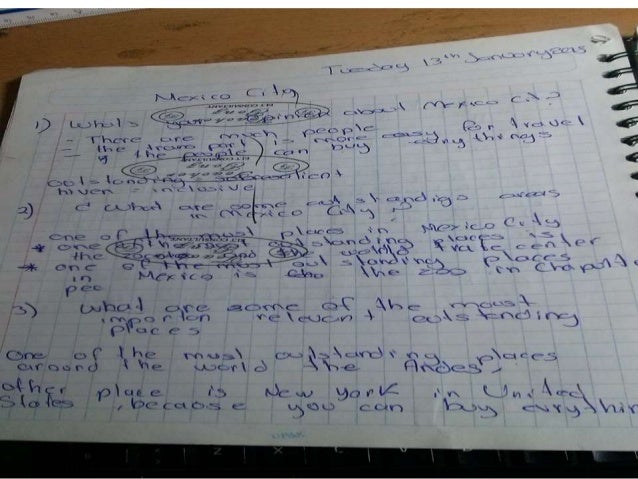 Tuesday 13th January 2015
Mexico City
1) Whals your opinion about Mexico Cit?
- There are much people
- the trans port is more easy for travel
- If the people can buy evry things
outstanding
hiven inclusive
2) What are some outstandings areas
in Mexico City?
one of the must places in Mexico City
* one of the must outstanding places is
the world trate center
* one of the must outstanding places
in Mexico is the zoo in Chapult
3) what are some of the moust
importan relevant outstending
places
one of the must outstanding places
around the world the Andes,
other place is New York in United
States, because you can buy evrythin